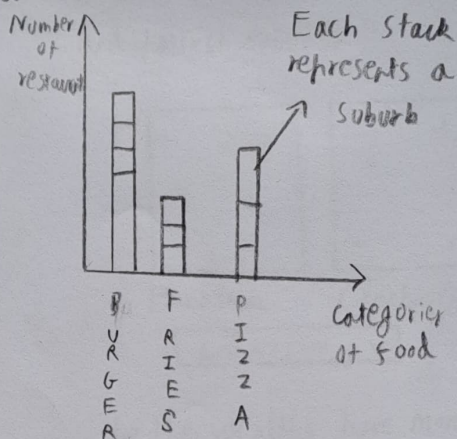 Number
of
restaurant
Each Stack
represents a
suburb
BURGER
FRIES
PIZZA
Categories
of food